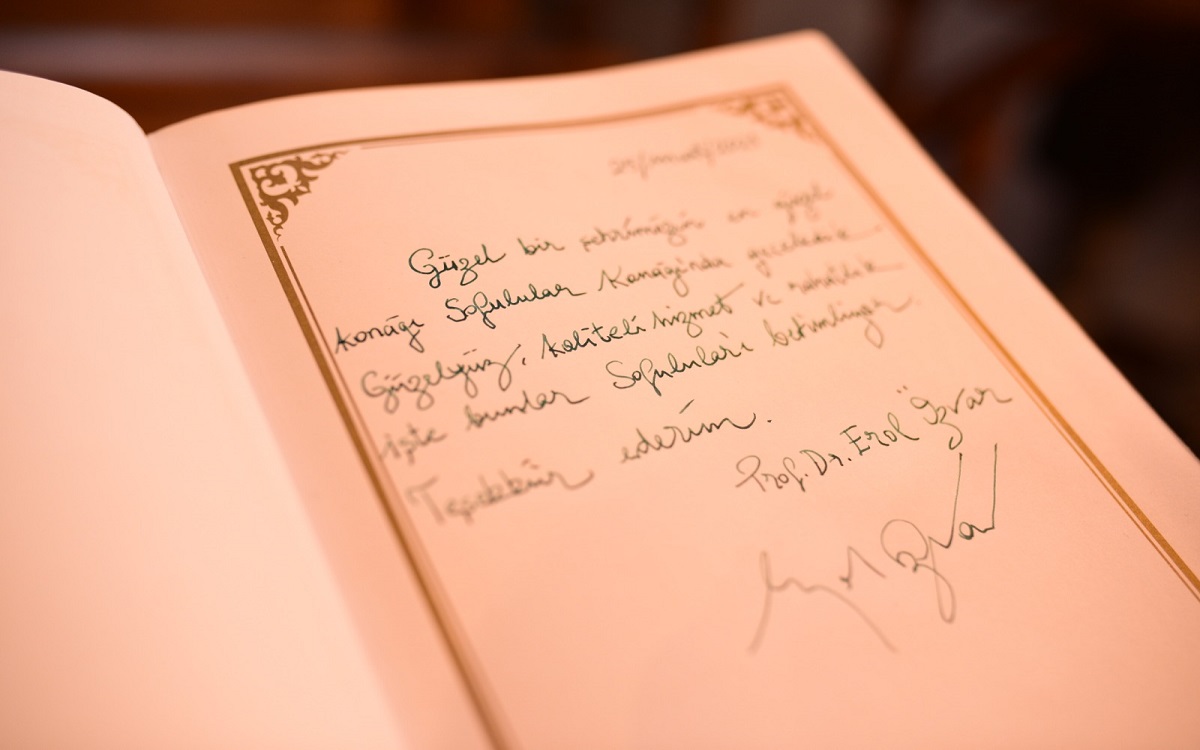 Güzel bir şehrimizin en güzel
konağı Sofulular Konağı'nda geceledik.
Güzelyüz, kaliteli hizmet ve rahatlık
işte bunlar Sofuluları betimliyor.
Teşekkür ederim.
Prof. Dr. Erol Özvar